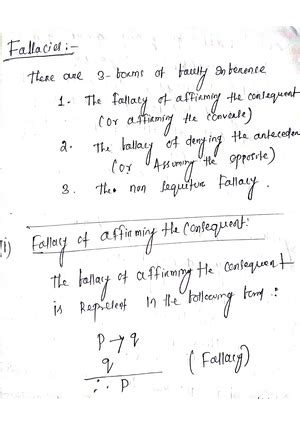 Fallacies :-
There are 3-forms of faulty Inference
1. The fallacy of affirming the consequent
(or affirming the converse)
2. The fallacy of denying the anteceden
(or Assuming the opposite)
3. The non sequitur Fallacy.
i) Fallacy of affirming the consequent:
The fallacy of affirming the consequent
is Represent in the following form :
P → q
q
∴ P
(Fallacy)